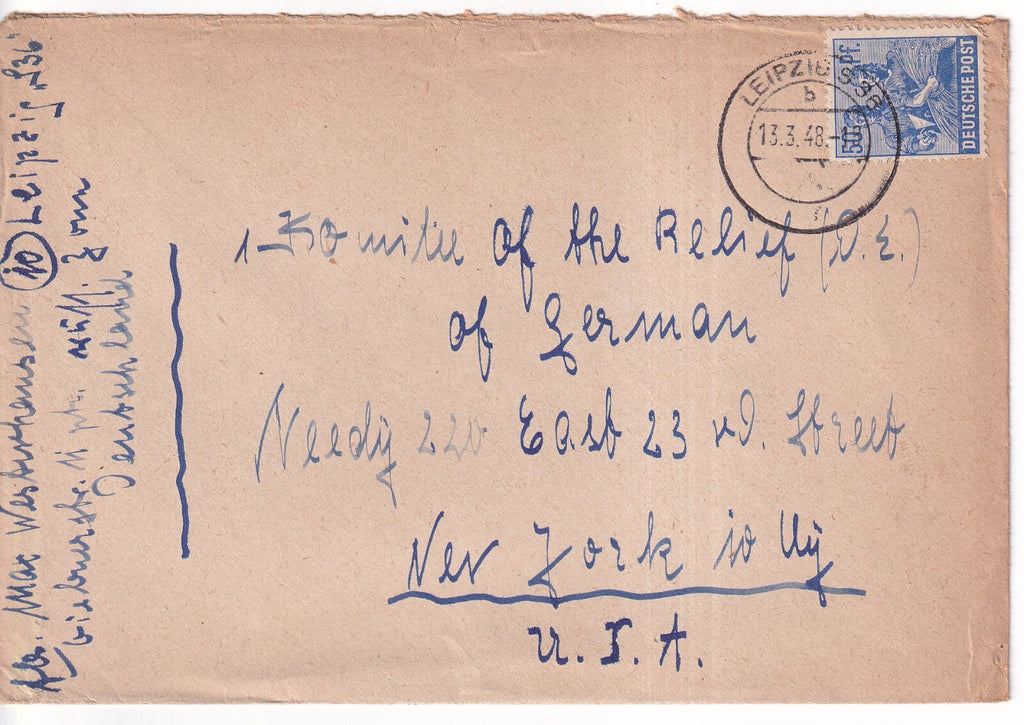 LEIPZIG S 36
b
13.3.48.
50 Pf.
DEUTSCHE POST
Komitee of the Relief (D.E.)
of German
Needy 220 East 23 rd. Street
New York 10 Ny
U.S.A.
Abs. Max Westerhausen (10) Leipzig „S36“
11 ptr. russ. Zone
Deutschland